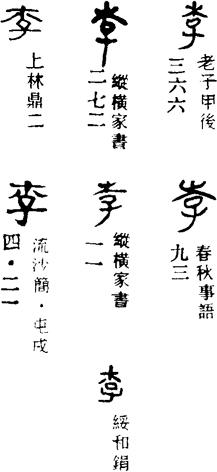 李
老子甲後
三六六
李
春秋事語
九三
李
縱橫家書
二七二
李
縱橫家書
一一
李
綏和鋗
李
上林鼎二
李
流沙簡·屯戍
四·二一